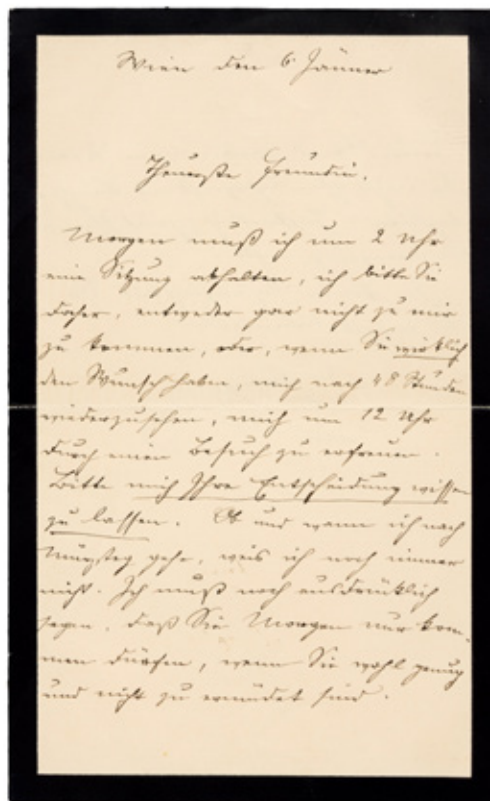 Wien den 6 Jänner
Theuerste Freundin.
Morgen muß ich um 2 Uhr
eine Sitzung abhalten, ich bitte Sie
daher, entweder gar nicht zu mir
zu kommen, oder, wenn Sie wirklich
den Wunsch haben, mich nach 48 Stunden
wiederzusehen, mich um 12 Uhr
durch einen Besuch zu erfreuen.
Bitte mich Ihre Entscheidung wissen
zu lassen. Ob und wann ich nach
Mürzsteg gehe, weis ich noch immer
nicht. Ich muß noch ausdrücklich
sagen, daß Sie Morgen nur kom-
men dürfen, wenn Sie wohl genug
und nicht zu ermüdet sind.